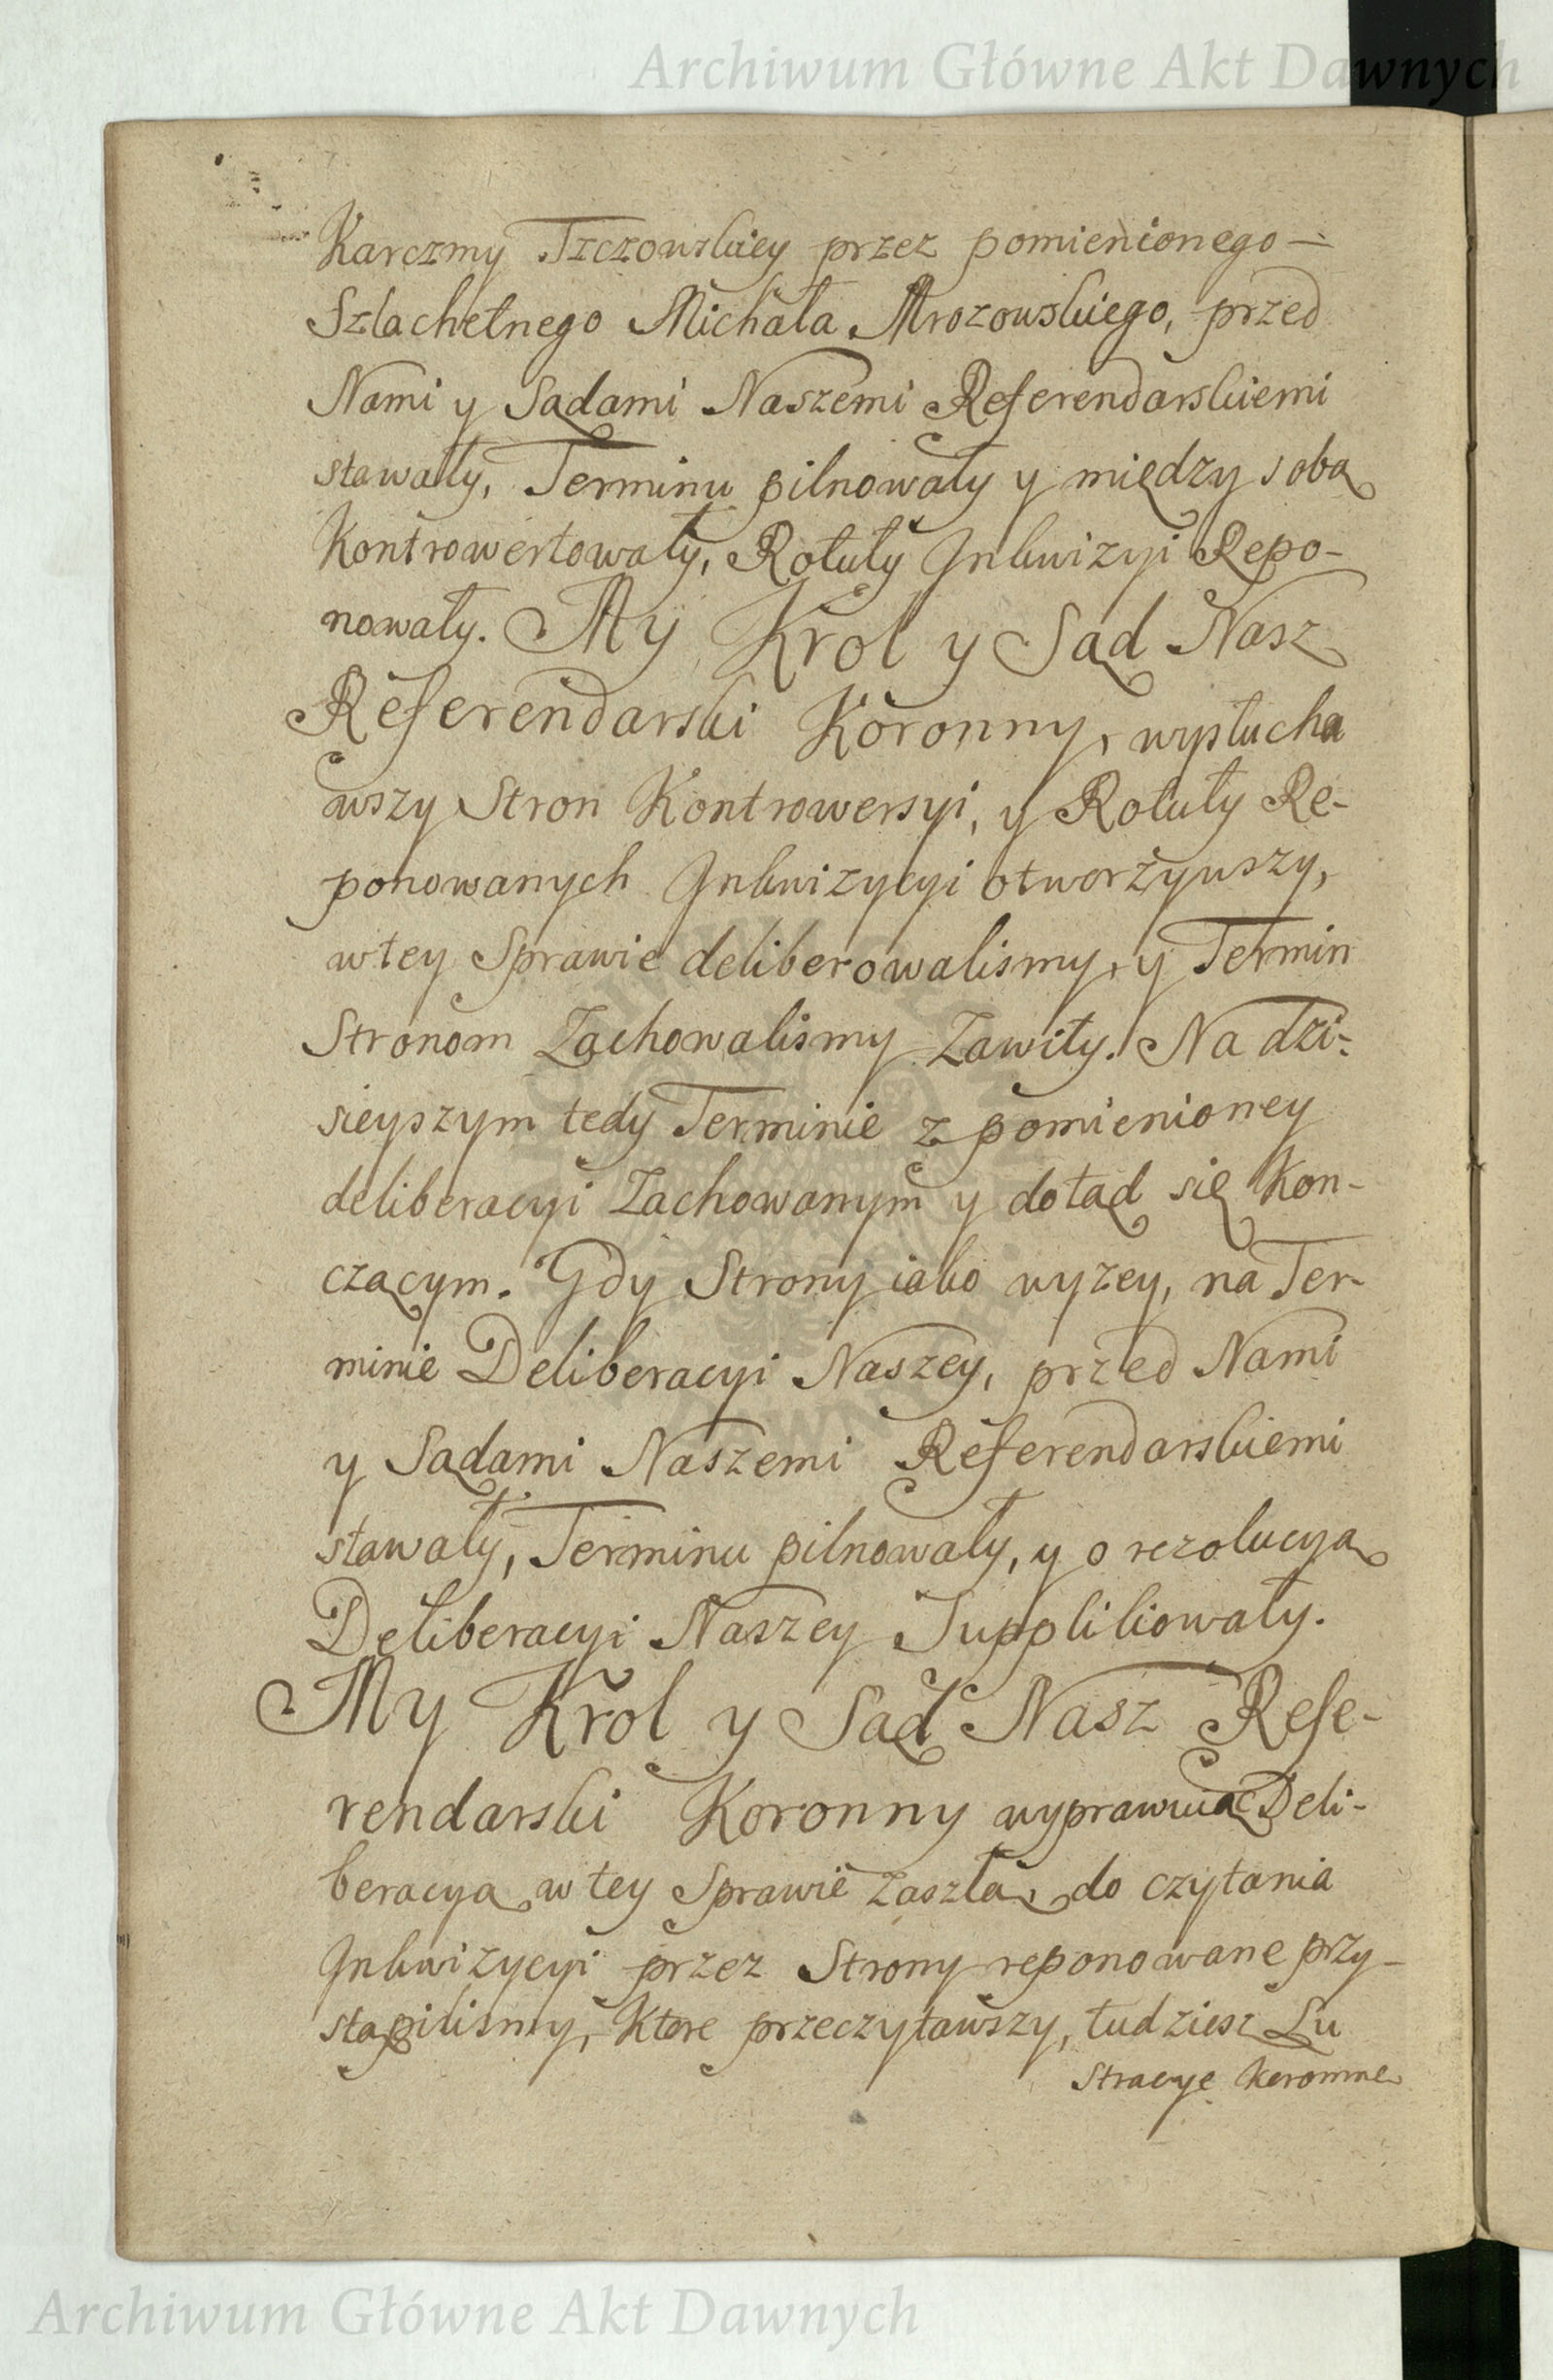 Archiwum Główne Akt Dawnych
Karczmy Tczowskiey przez pomienionego —
Szlachetnego Michała Mrozowskiego, przed
Nami y Sądami Naszemi Referendarskiemi
stawały, Terminu pilnowały y między sobą
Kontrowertowały, Rotuły Inkwizyi Repo-
nowały. My Krol y Sąd Nasz
Referendarski Koronny, wysłucha
wszy Stron Kontrowersyi, y Rotuły Re-
ponowanych Inkwizycyi otworzywszy,
w tey Sprawie deliberowalismy, y Termin
Stronom Zachowalismy Zawity. Na dzi-
sieyszym tedy Terminie z pomienioney
deliberacyi Zachowanym y dotąd się Kon-
czącym. Gdy Strony iako wyzey, na Ter-
minie Deliberacyi Naszey, przed Nami
y Sądami Naszemi Referendarskiemi
stawały, Terminu pilnowały, y o rezolucyą
Deliberacyi Naszey Supplikowały.
My Krol y Sąd Nasz Refe-
rendarski Koronny wyprawuiąc Deli-
beracyą w tey Sprawie zaszłą, do czytania
Inkwizycyi przez Strony reponowane przy-
stąpilismy, Ktore przeczytawszy, tudziesz Lu
stracye Koronne
Archiwum Główne Akt Dawnych